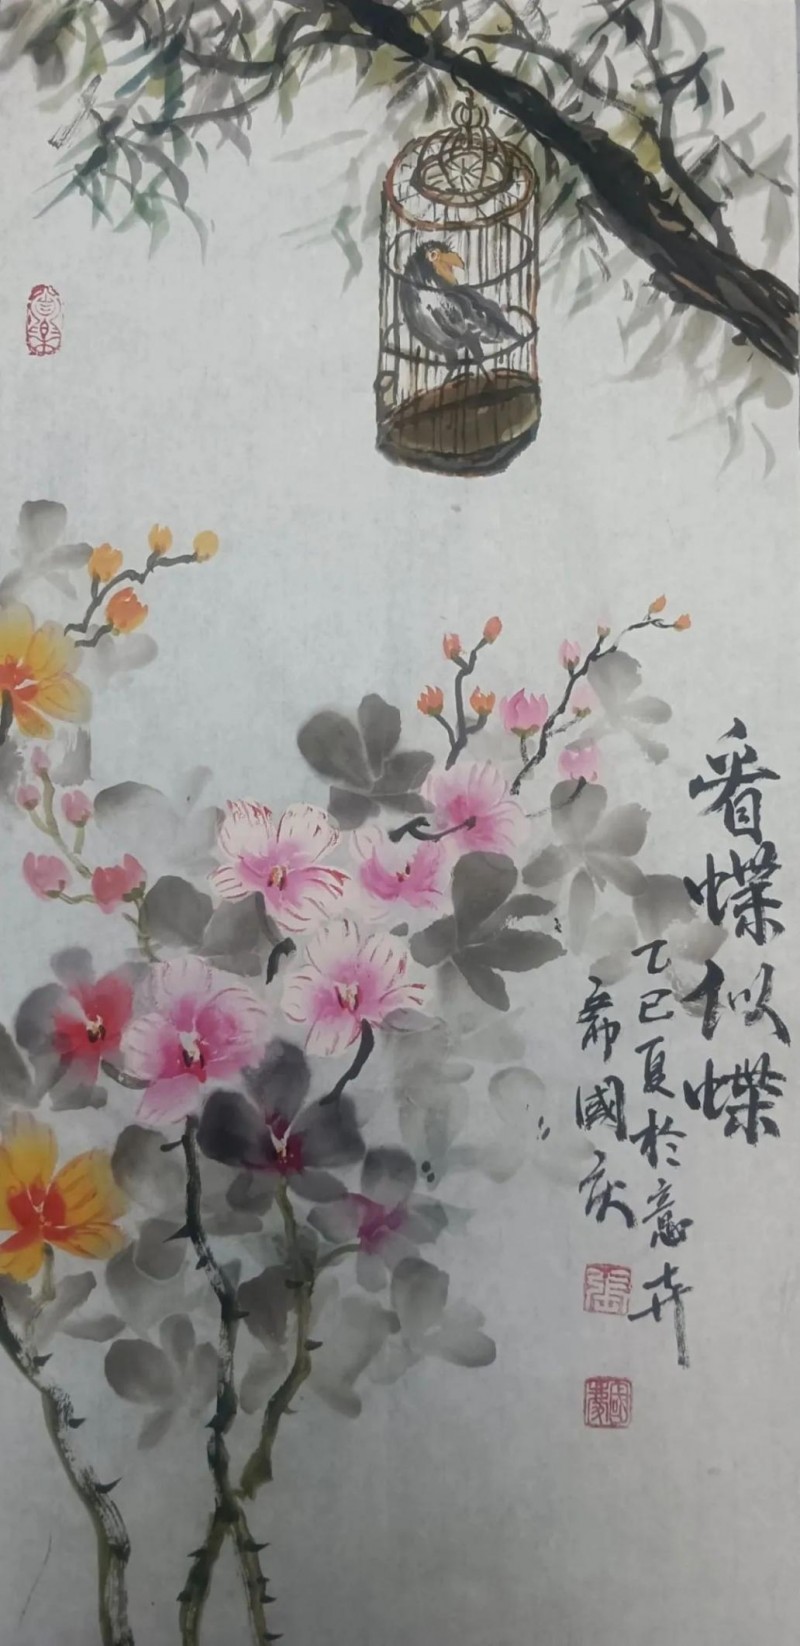 看蝶似蝶
乙巳夏於意卉
國庆